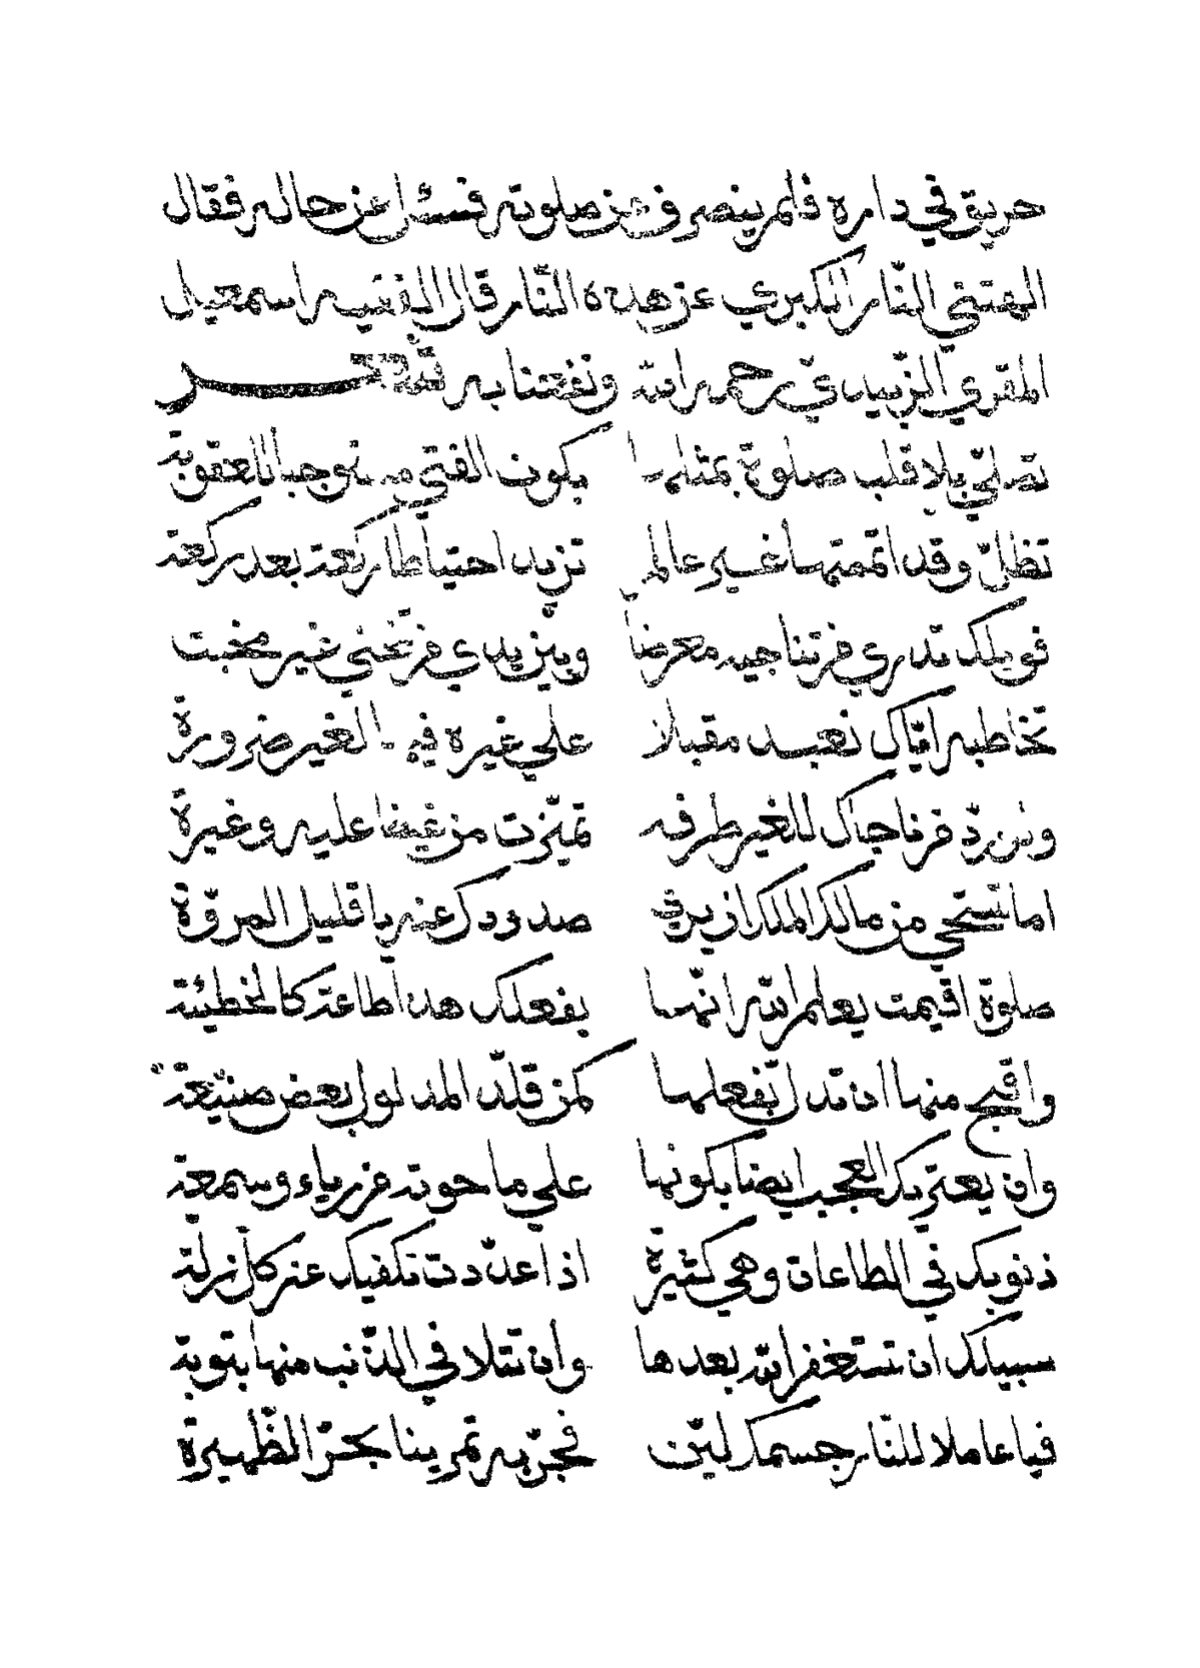 حريق في داره فلم ينصرف عن صلوته فسئل عن حاله فقال
الهتني النار الكبري عن هذه النار قال الفقيه اسمعيل
المقري الزبيدي رحمه الله ونفعنا به شعر
تصلي بلا قلب صلوة بمثلها يكون الفتي مستوجبا للعقوبة
تظل وقد اتممتها غير عالم تزيد احتياطا ركعة بعد ركعة
فويلك تدري من تناجيه معرضا وبين يدي من تنحني غير مخبت
تخاطبه اياك نعبد مقبلا علي غيره فيها لغير ضرورة
ولو رد من ناجاك للغير طرفه تميزت من غيظ عليه وغيرة
اما تستحي من مالك الملك ان يري صدودك عنه يا قليل المروة
صلوة اقيمت يعلم الله انها بفعلك هذا طاعة كالخطيئة
واقبح منها ان تدل بفعلها كمن قلد المدلول بعض صنيعة
وان يعتريك العجب ايضا بكونها علي ما حوته من رياء وسمعة
ذنوبك في الطاعات وهي كثيرة اذا عددت تكفيك عن كل زلة
سبيلك ان تستغفر الله بعدها وان تتلافي الذنب منها بتوبة
فيا عاملا للنار جسمك لين فجربه تمرينا بحر الظهيرة